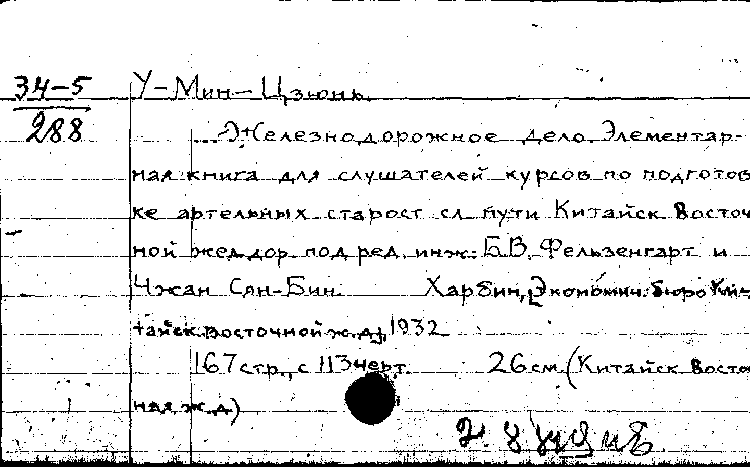 34-5
288
У-Мин-Цзюнь.
Железнодорожное дело. Элементар-
ная книга для слушателей курсов по подготов
ке артельных старост сл пути Китайск. Восточ
ной жел дор. под ред. инж. Б.В. Фельзенгарт и
Чжан Сян-Бин. Харбин, Экономич. бюро Ки-
тайск. восточной ж.д., 1932
167 стр., с 113 черт. 26 см. (Китайск. Восто
ная ж.д.)